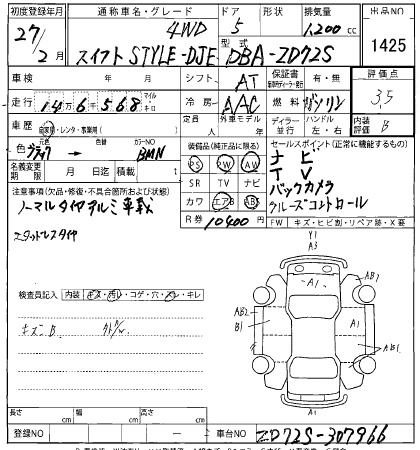 初度登録年月 通称車名・グレード ドア 形状 排気量 出品NO
27/2月 スイフト STYLE-DJE 4WD 5 1,200 cc 1425
型式 DBA-ZD72S
車検 年 月 シフト AT 保証書 有・無 評価点
走行 14万6千568 マイル・キロ 冷房 A/AC 燃料 ガソリン 3.5
車歴 自家用・レンタ・事業用( ) 定員 人 外車モデル 年 ディーラー 並行 ハンドル 左・右 内装評価 B
色 元色 ブラック → カラーNO BMN
名義変更 期限 月 日迄 積載 t
装備品(純正品に限る) セールスポイント(正常に機能するもの)
PS PW AW ナビ
SR TV ナビ TV
カワ エアB ABS バックカメラ
R券 10400円 クルーズコントロール
注意事項(欠品・修復・不具合箇所および状態)
ノーマルタイヤアルミ車載
スタットレスタイヤ
FW キズ・ヒビ割・リペア跡・X要
検査員記入 内装 キズ・汚レ・コゲ・穴・ハレ・キレ
キズこB
Y1
A3
A1
AB1
AB2
B1
A1
AB1
A1
長さ cm 幅 cm 高さ cm
登録NO — 車台NO ZD72S-307966